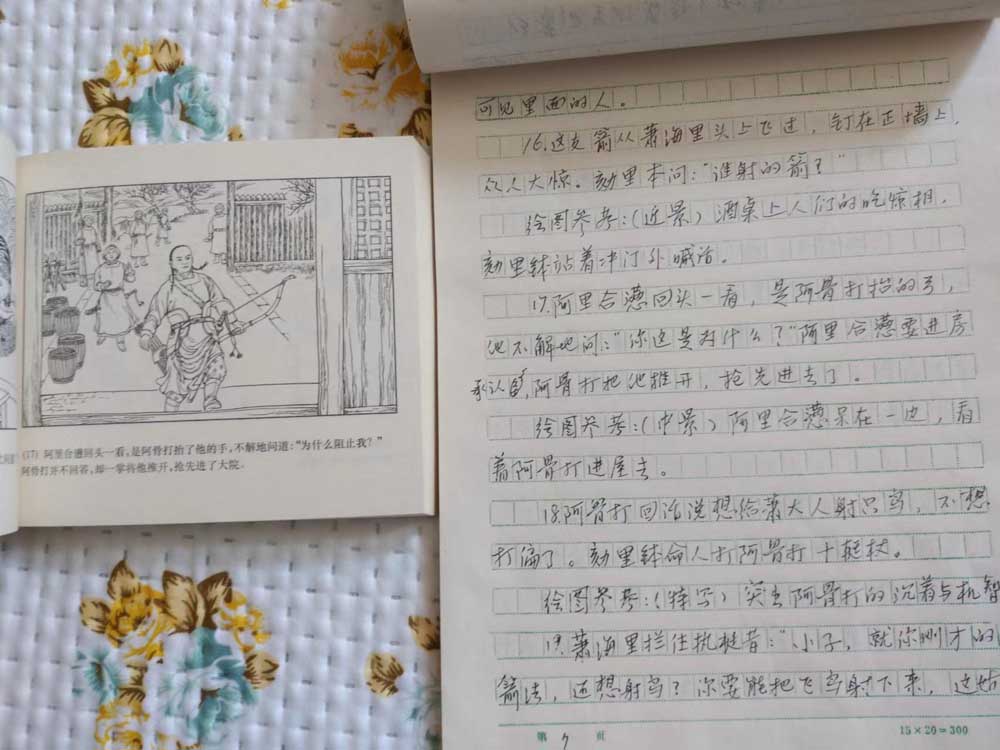 (17) 阿里合懑回头一看，是阿骨打抬了他的手，不解地问道：“为什么阻止我？”
阿骨打并不回答，却一掌将他推开，抢先进了大院。
可见里面的人。
16.这支箭从萧海里头上飞过，钉在正墙上，
众人大惊。劾里本问：“谁射的箭？”
绘图参考：（近景）酒桌上人们的吃惊相，
劾里钵站着冲门外喊话。
17.阿里合懑回头一看，是阿骨打抬的弓，
他不解地问：“你这是为什么？”阿里合懑要进房
承认，阿骨打把他推开，抢先进去了。
绘图参考：（中景）阿里合懑呆在一边，看
着阿骨打进屋去。
18.阿骨打回话说想给萧大人射只鸟，不想
打偏了。劾里钵命人打阿骨打十梃杖。
绘图参考：（特写）突出阿骨打的沉着与机智
19.萧海里拦住执梃者：“小子，就你刚才的
箭法，还想射鸟？你要能把飞鸟射下来，这
第 7 页
15×20=300